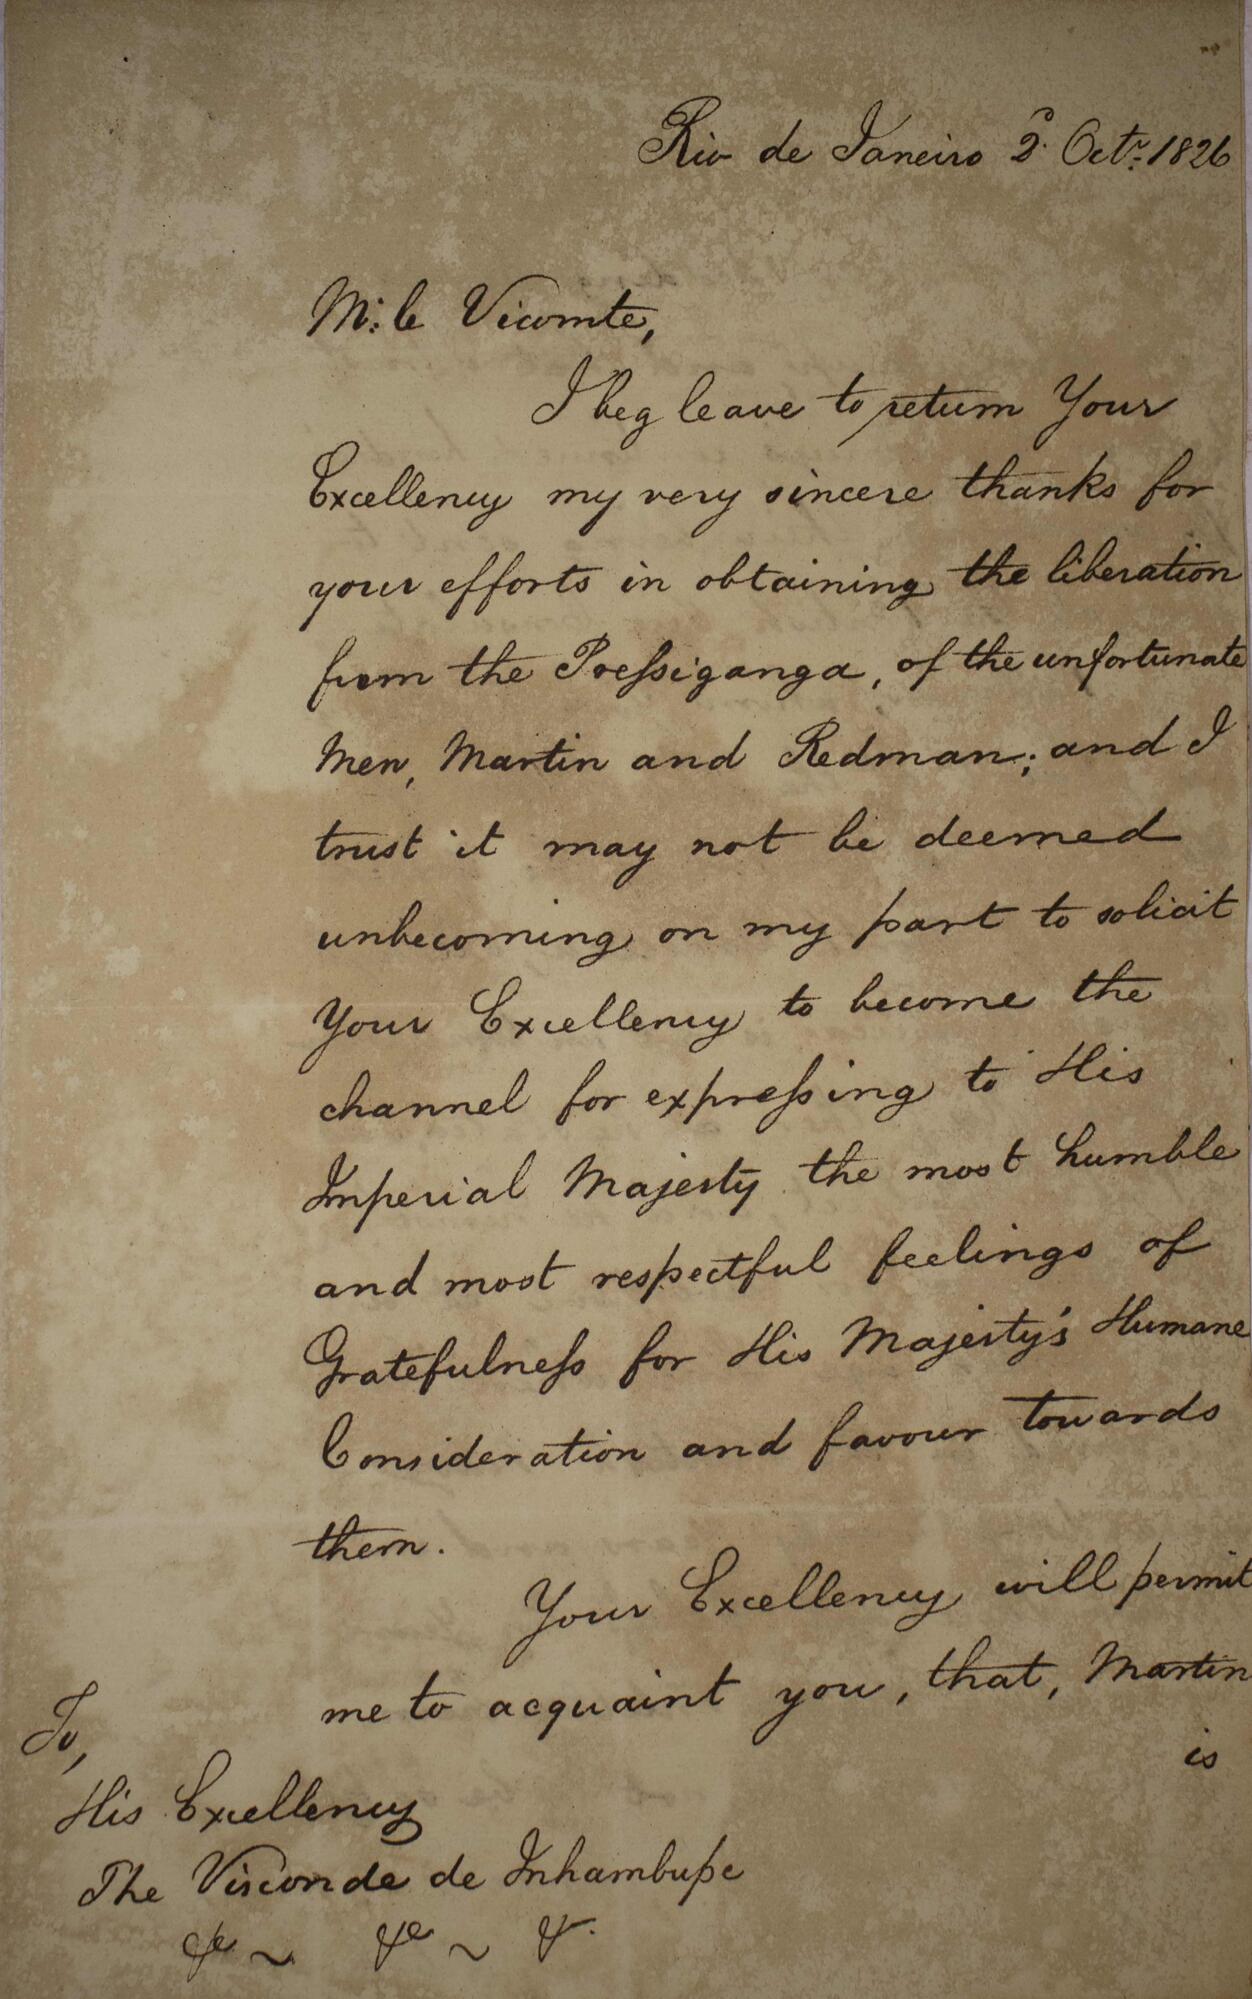 Rio de Janeiro 2d. Octr. 1826
Mr. le Vicomte,
I beg leave to return Your
Excellency my very sincere thanks for
your efforts in obtaining the liberation
from the Presſiganga, of the unfortunate
Men, Martin and Redman; and I
trust it may not be deemed
unbecoming on my part to solicit
Your Excellency to become the
channel for expreſsing to His
Imperial Majesty the most humble
and most respectful feelings of
Gratefulneſs for His Majesty's Humane
Consideration and favour towards
them.
Your Excellency will permit
me to acquaint you, that, Martin
is
To,
His Excellency
The Visconde de Inhambupe
&c ~ &c ~ &.